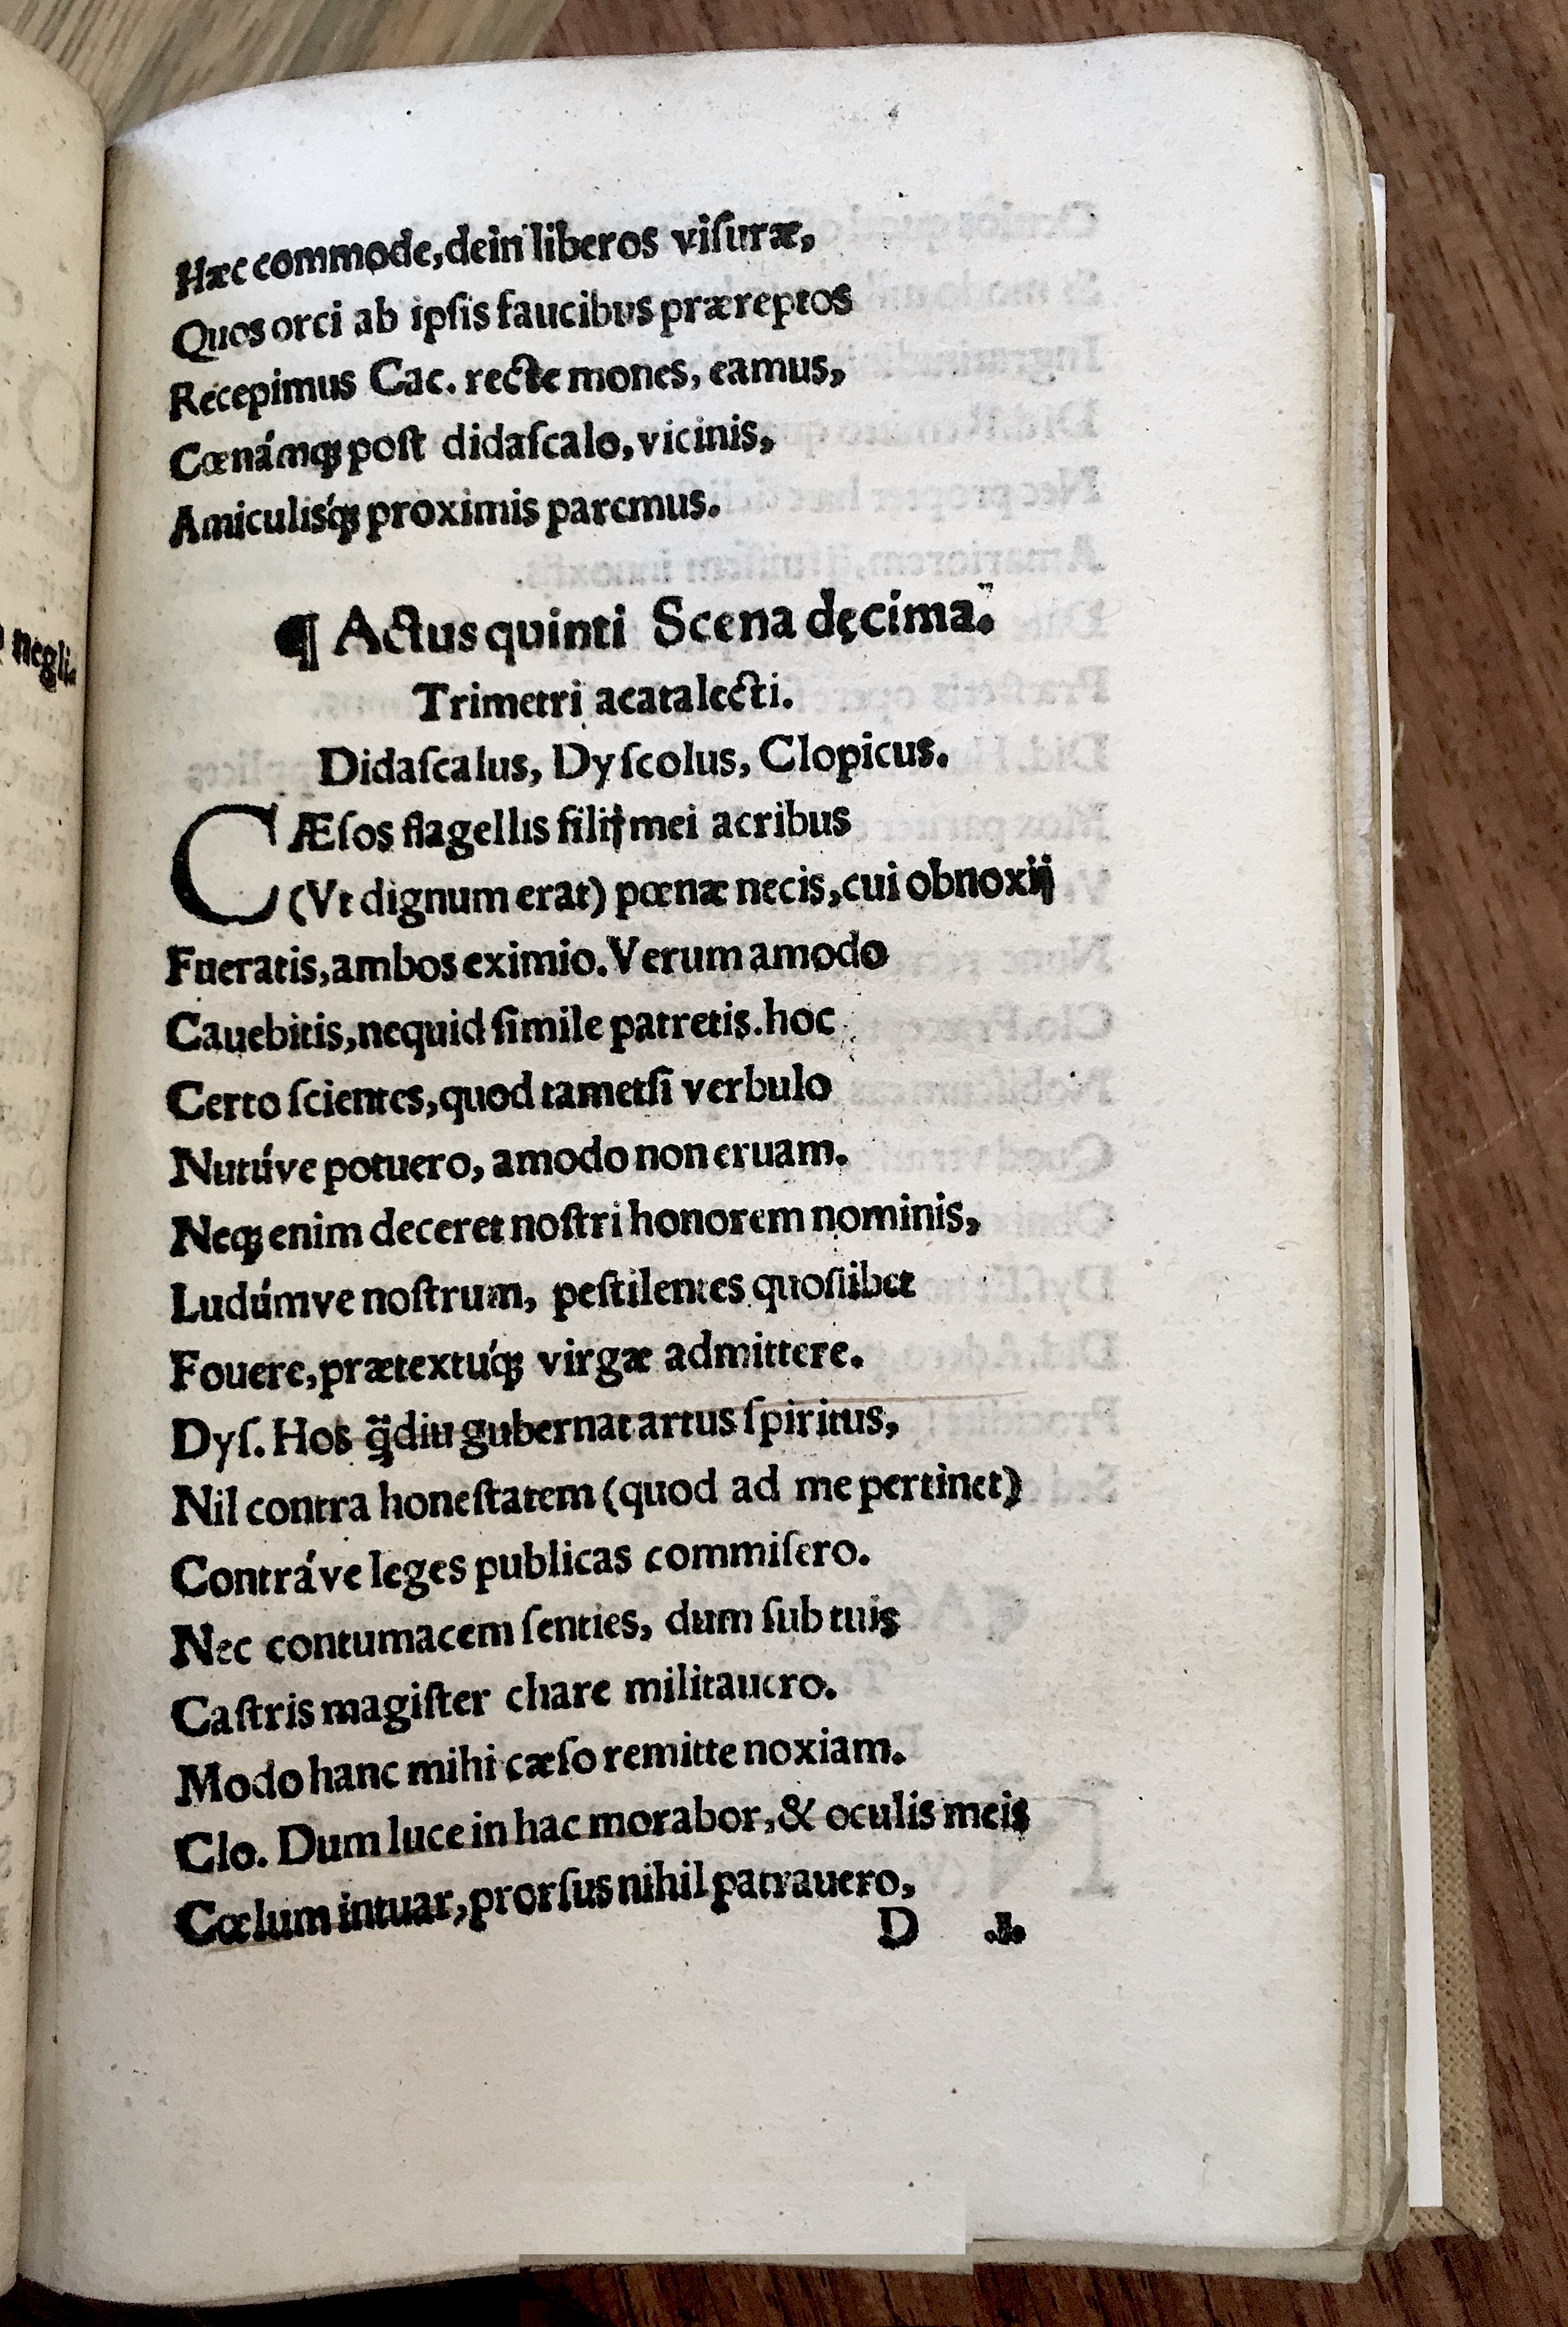 negli⸗
Hæc commode, dein liberos viſuræ,
Quos orci ab ipſis faucibus præreptos
Recepimus Cac. recte mones, eamus,
Cœnámqꝫ poſt didaſcalo, vicinis,
Amiculisq́ꝫ proximis paremus.
¶ Actus quinti Scena dęcima.
Trimetri acatalecti.
Didaſcalus, Dyſcolus, Clopicus.
CÆſos flagellis filij mei acribus
(Vt dignum erat) pœnæ necis, cui obnoxij
Fueratis, ambos eximio. Verum amodo
Cauebitis, nequid ſimile patretis. hoc
Certo ſcientes, quod tametſi verbulo
Nutúve potuero, amodo non eruam.
Neqꝫ enim deceret noſtri honorem nominis,
Ludúmve noſtrum, peſtilentes quoslibet
Fouere, prætextúqꝫ virgæ admittere.
Dyſ. Hos q̈diu gubernat artus ſpiritus,
Nil contra honeſtatem (quod ad me pertinet)
Contráve leges publicas commiſero.
Nec contumacem ſenties, dum ſub tuis
Caſtris magiſter chare militauero.
Modo hanc mihi cæſo remitte noxiam.
Clo. Dum luce in hac morabor, & oculis meis
Cœlum intuar, prorſus nihil patrauero,
D .i.